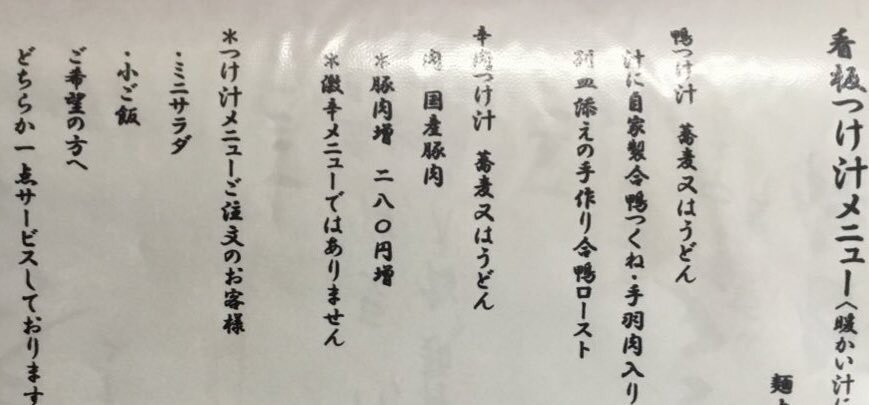 看板つけ汁メニュー(暖かい汁に
麺
鴨つけ汁 蕎麦又はうどん
汁に自家製合鴨つくね・手羽肉入り
別皿添えの手作り合鴨ロースト
辛肉つけ汁 蕎麦又はうどん
肉 国産豚肉
*豚肉増 二八〇円増
*激辛メニューではありません
*つけ汁メニューご注文のお客様
・ミニサラダ
・小ご飯
ご希望の方へ
どちらか一点サービスしております